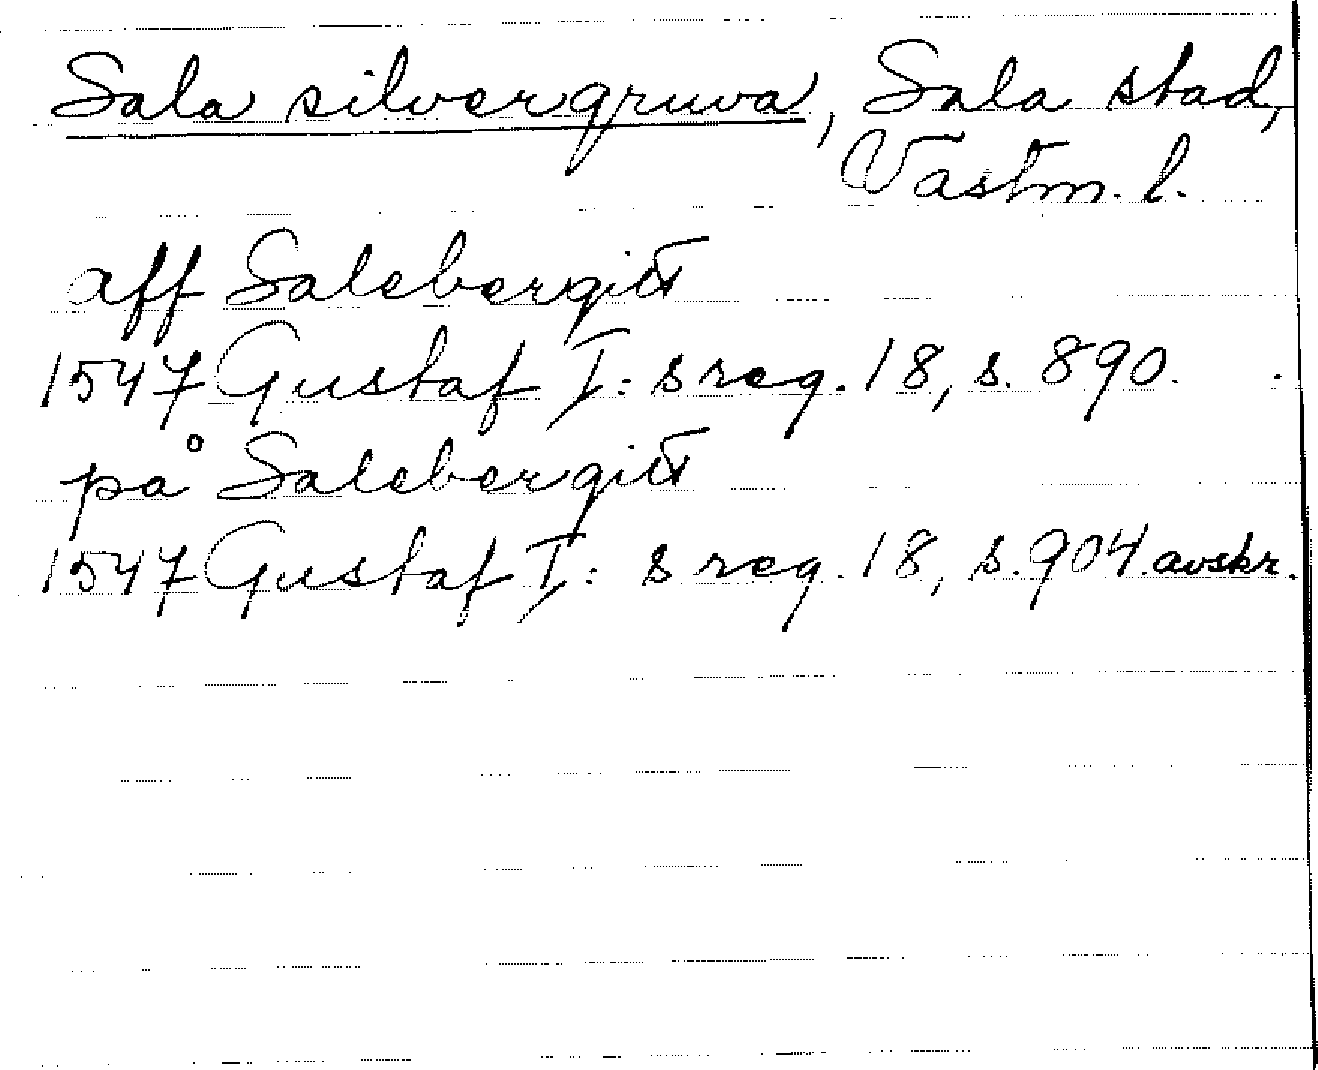 Sala silvergruva, Sala stad,
Västm. l.
aff Salebergitt
1547 Gustaf I:s reg. 18, s. 890.
på Salebergitt
1547 Gustaf I:s reg. 18, s. 904 avskr.